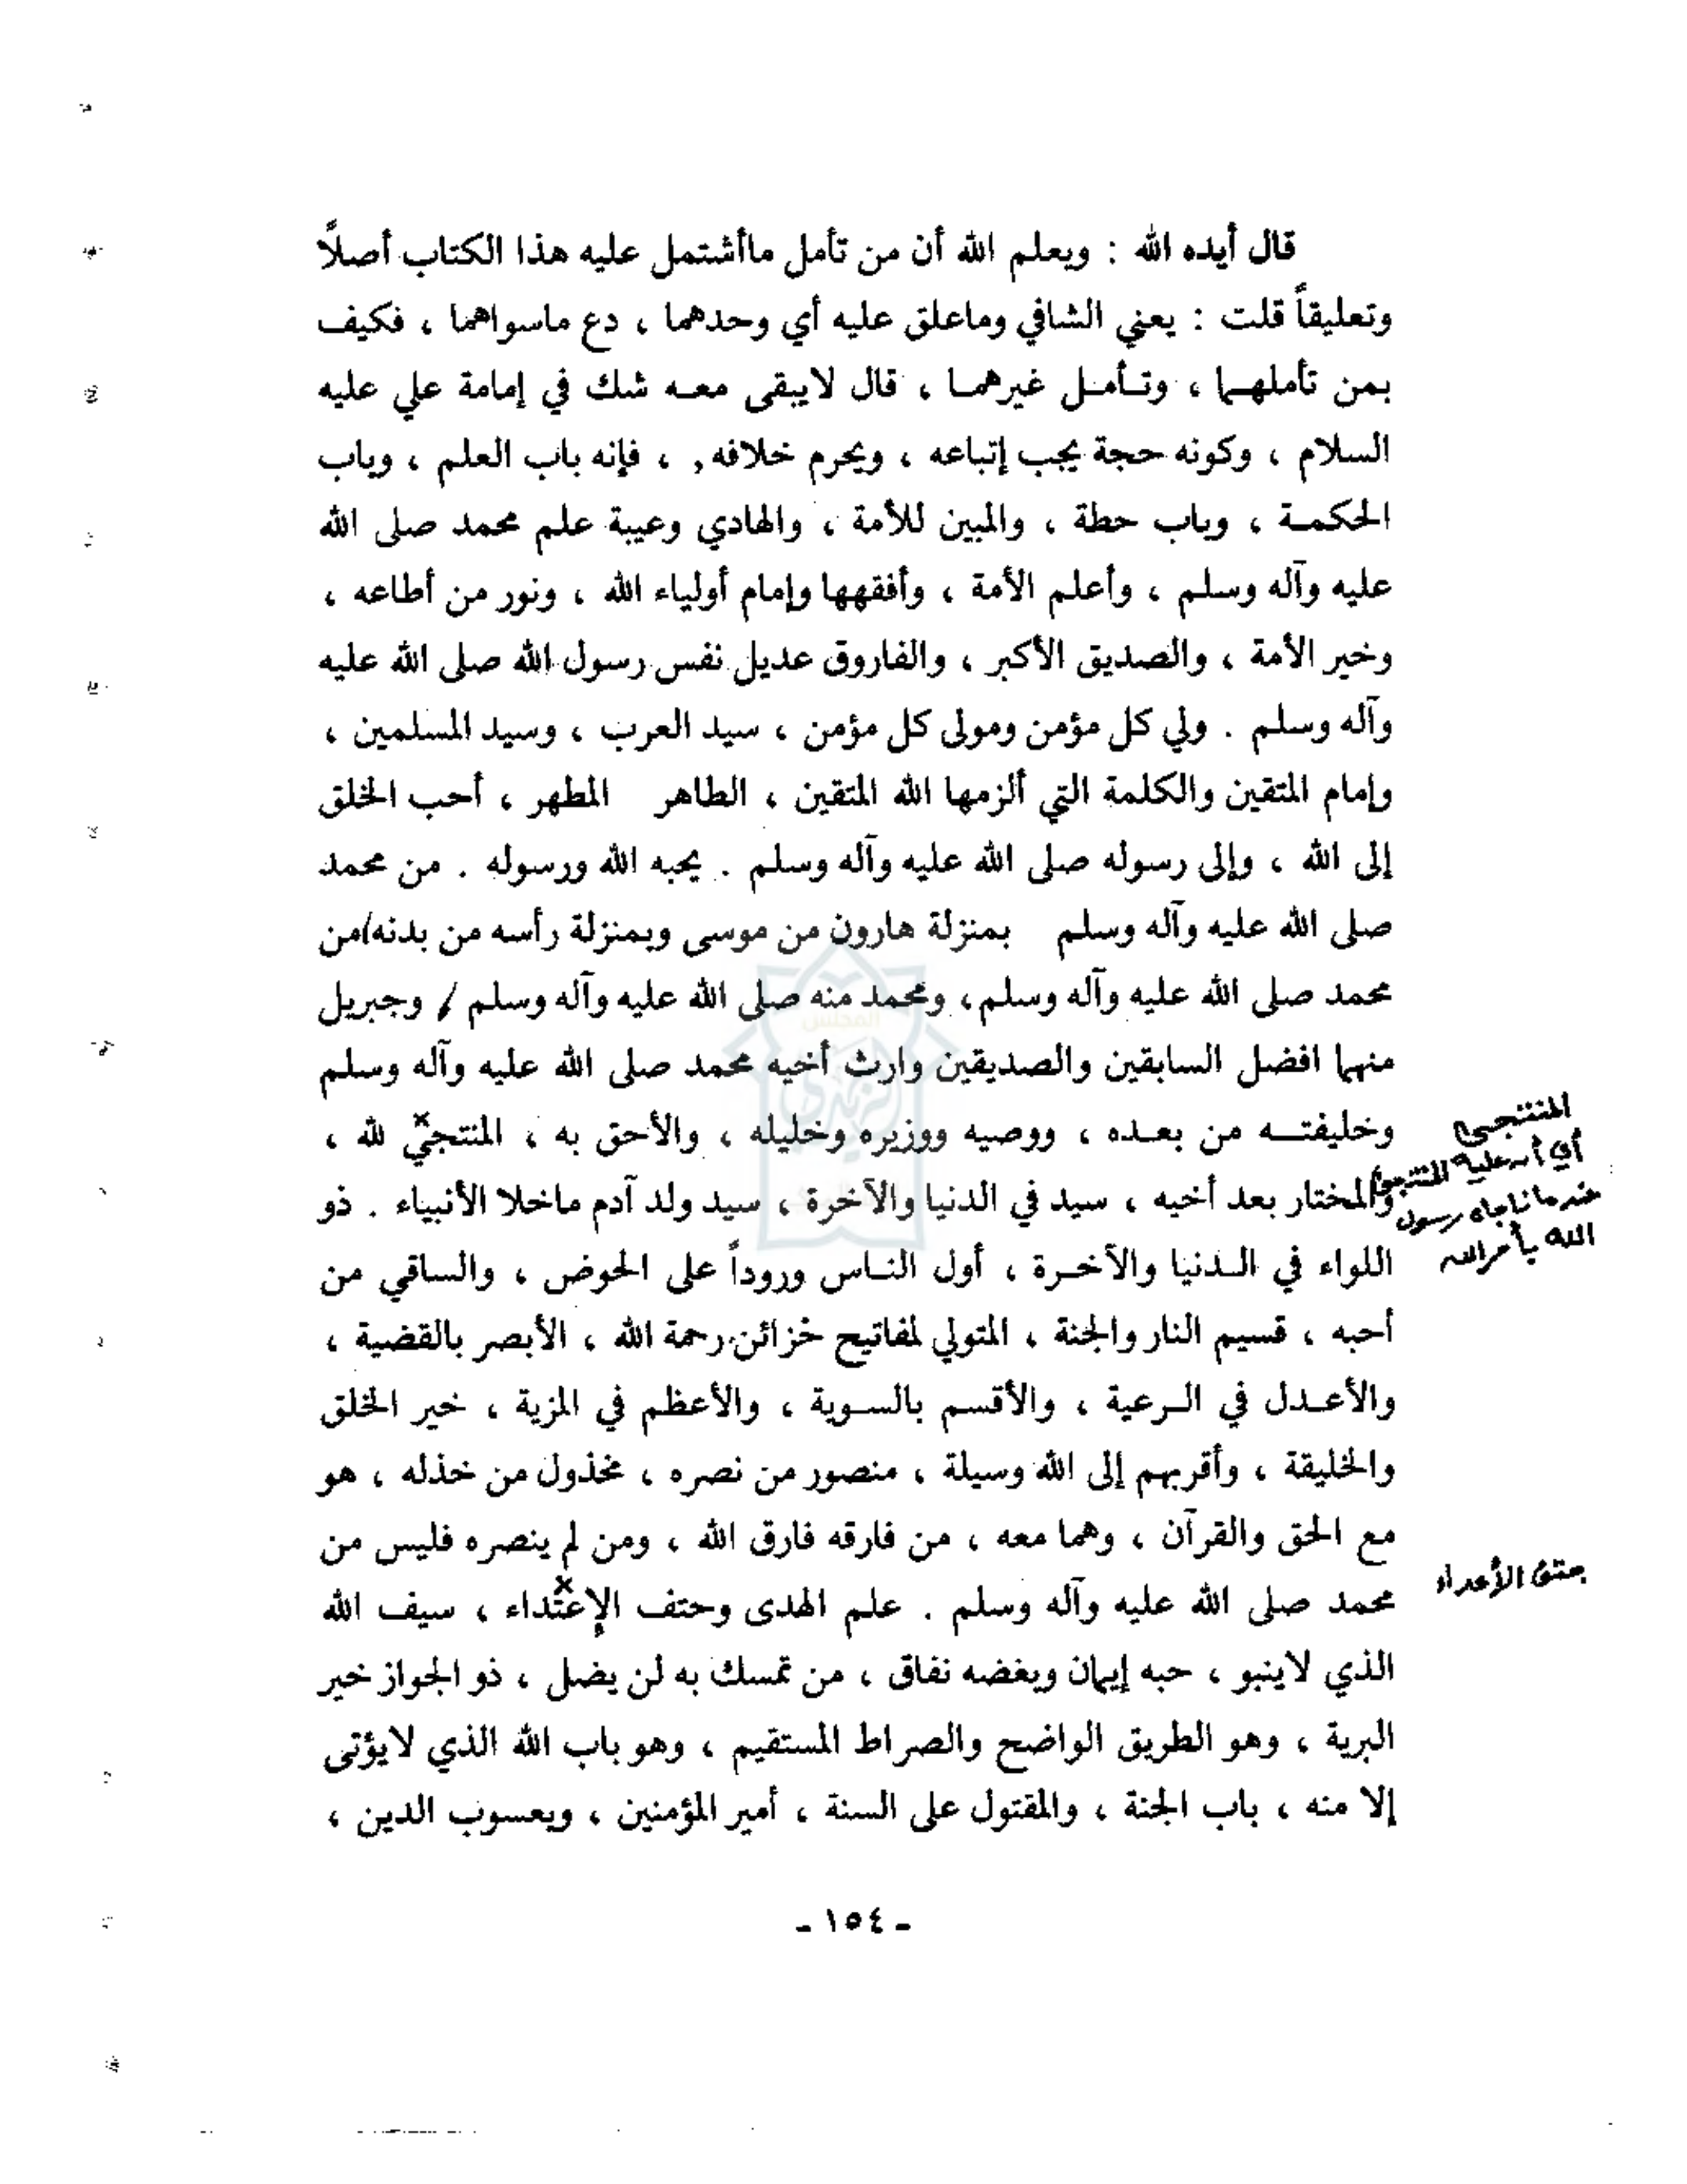 قال أيده الله : ويعلم الله أن من تأمل ماأشتمل عليه هذا الكتاب أصلاً
وتعليقاً قلت : يعني الشافي وماعلق عليه أي وحدهما ، دع ماسواهما ، فكيف
بمن تأملهما ، وتأمل غيرهما ، قال لايبقى معه شك في إمامة علي عليه
السلام ، وكونه حجة يجب إتباعه ، ويحرم خلافه, ، فإنه باب العلم ، وباب
الحكمة ، وباب حطة ، والمبين للأمة ، والهادي وعيبة علم محمد صلى الله
عليه وآله وسلم ، وأعلم الأمة ، وأفقهها وإمام أولياء الله ، ونور من أطاعه ،
وخير الأمة ، والصديق الأكبر ، والفاروق عديل نفس رسول الله صلى الله عليه
وآله وسلم . ولي كل مؤمن ومولى كل مؤمن ، سيد العرب ، وسيد المسلمين ،
وإمام المتقين والكلمة التي ألزمها الله المتقين ، الطاهر المطهر ، أحب الخلق
إلى الله ، وإلى رسوله صلى الله عليه وآله وسلم . يحبه الله ورسوله . من محمد
صلى الله عليه وآله وسلم بمنزلة هارون من موسى وبمنزلة رأسه من بدنه/من
محمد صلى الله عليه وآله وسلم، ومحمد منه صلى الله عليه وآله وسلم / وجبريل
منهما افضل السابقين والصديقين وارث أخيه محمد صلى الله عليه وآله وسلم
وخليفته من بعده ، ووصيه ووزيره وخليله ، والأحق به ، المنتجيّ لله ،
والمختار بعد أخيه ، سيد في الدنيا والآخرة ، سيد ولد آدم ماخلا الأنبياء . ذو
اللواء في الدنيا والآخرة ، أول الناس وروداً على الحوض ، والساقي من
أحبه ، قسيم النار والجنة ، المتولي لمفاتيح خزائن رحمة الله ، الأبصر بالقضية ،
والأعدل في الرعية ، والأقسم بالسوية ، والأعظم في المزية ، خير الخلق
والخليقة ، وأقربهم إلى الله وسيلة ، منصور من نصره ، مخذول من خذله ، هو
مع الحق والقرآن ، وهما معه ، من فارقه فارق الله ، ومن لم ينصره فليس من
محمد صلى الله عليه وآله وسلم . علم الهدى وحتف الإعتداء ، سيف الله
الذي لاينبو ، حبه إيمان وبغضه نفاق ، من تمسك به لن يضل ، ذو الجواز خير
البرية ، وهو الطريق الواضح والصراط المستقيم ، وهو باب الله الذي لايؤتى
إلا منه ، باب الجنة ، والمقتول على السنة ، أمير المؤمنين ، ويعسوب الدين ،
- ١٥٤ -
المنتجى
عندما ناجاه رسول
الله بأمر الله
الأعداء
المجلس